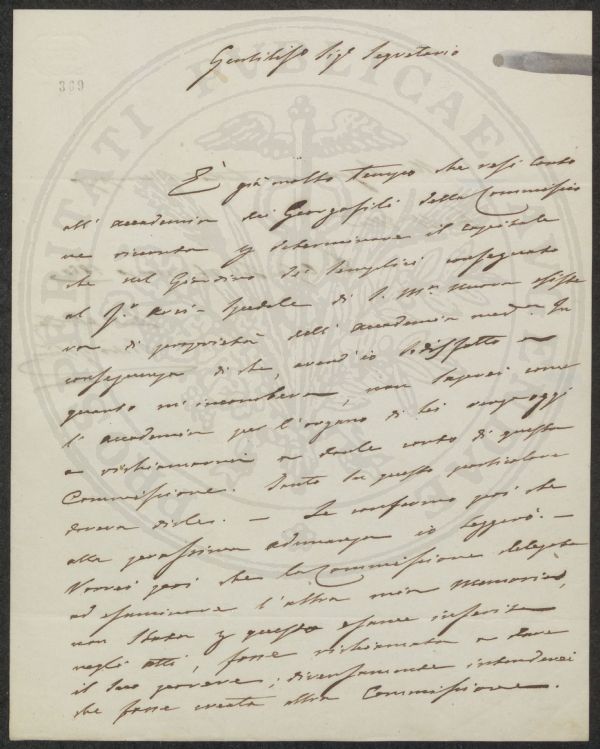 Gentiliſs.º Sig.r Segretario
369
È già molto tempo che resi conto
all' accademia dei Georgofili della Commissio
ne ricevuta p determinare il capitale
che nel Giardino dei Semplici consegnato
al R.º Arci-Spedale di S. M.a Nuova esiste
va di proprietà dell' accademia med.a In
conseguenza di che, avend' io sodisfatto a
quanto mi incombeva, non saprei come
l' accademia per l' organo di Lei venga oggi
a richiamarmi a darle conto di questa
Commissione. Tanto su questo particolare
doveva dirle. — Le confermo poi che
alla prossima adunanza io leggerò. —
Vorrei poi che la Commissione delegata
ad esaminare l' altra mia Memoria,
non stata p questo esame inserita
negli atti, fosse richiamata a dare
il suo parere; diversamente intenderei
che fosse creata altra Commissione.
PROSPERITATI PVBLICAE